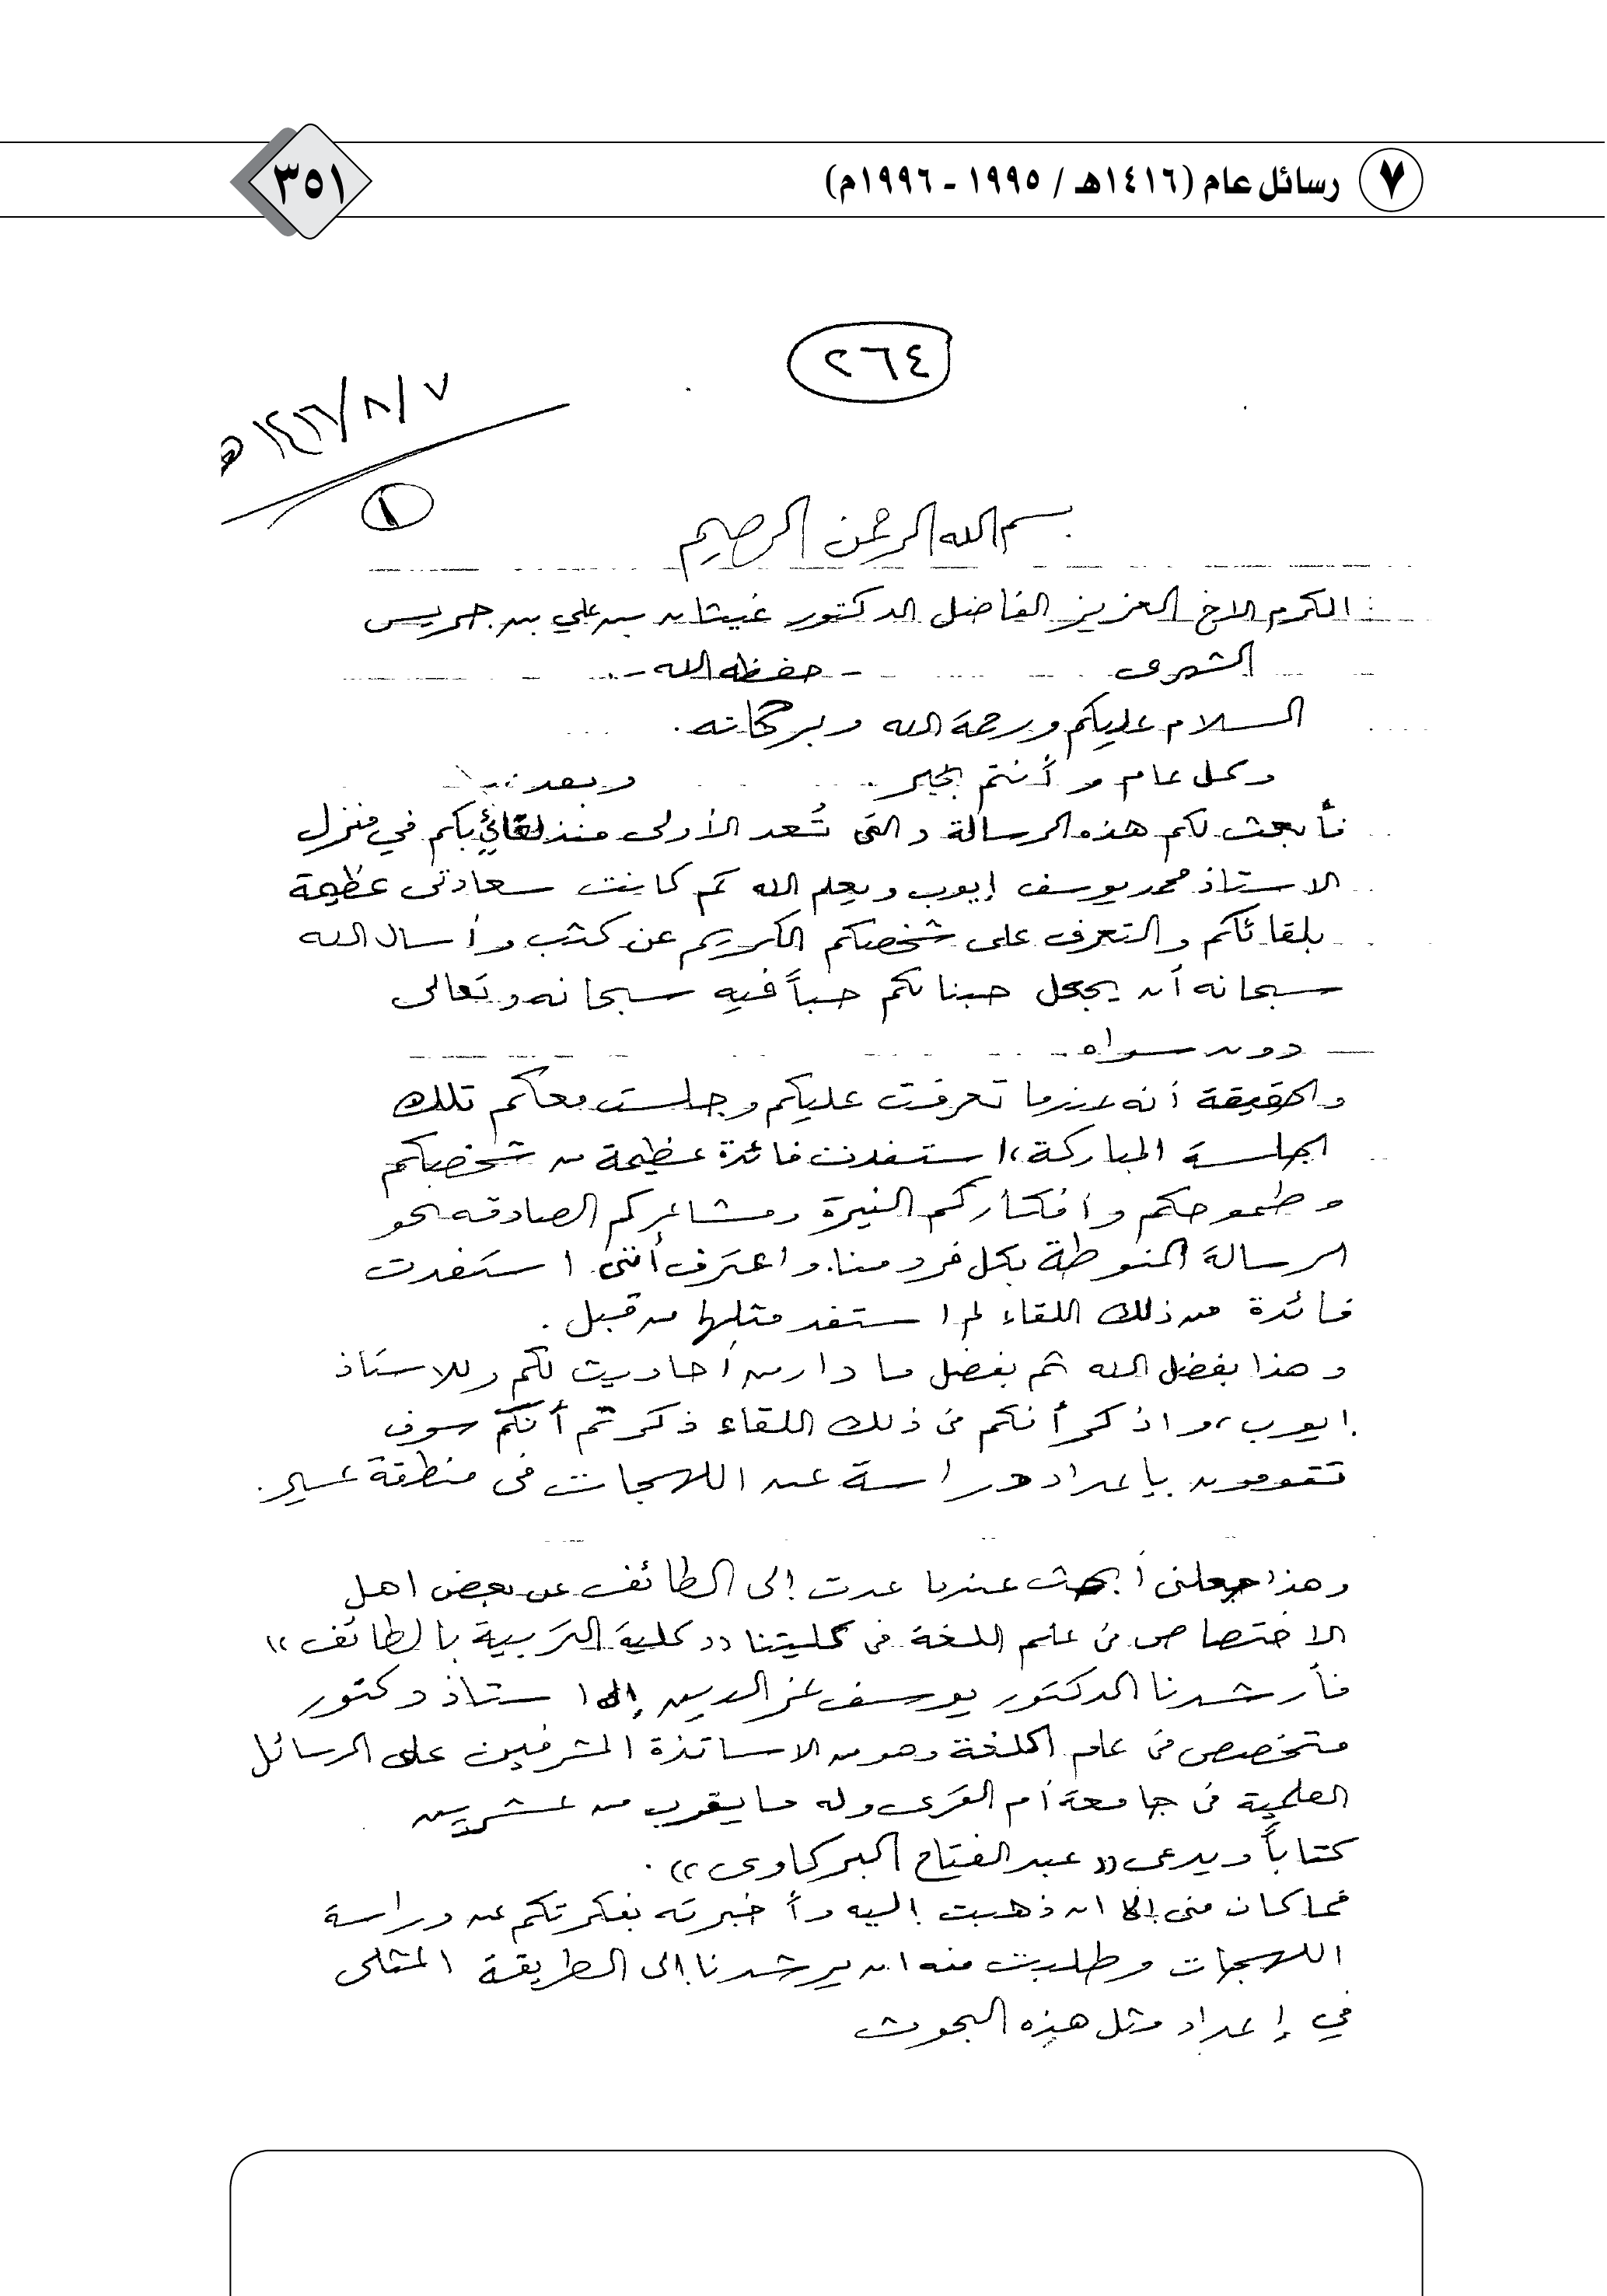 ٧ رسائل عام (١٤١٦هـ / ١٩٩٥ - ١٩٩٦م)
٣٥١
٢٦٤
٧/٨/١٤١٦هـ
١
بسم الله الرحمن الرحيم
المكرم الاخ العزيز الفاضل الدكتور غيثان بن علي بن جريس
الشهرى - حفظه الله -
السلام عليكم ورحمة الله وبركاته.
وكل عام وأنتم بخير. وبعد
فأبعث لكم هذه الرسالة والتى تُعد الأولى منذ لقائي بكم في منزل
الاستاذ محمد يوسف إيوب ويعلم الله كم كانت سعادتى عظيمة
بلقائكم والتعرف على شخصكم الكريم عن كثب وأسال الله
سبحانه أن يجعل حبنا لكم حباً فيه سبحانه وتعالى
دون سواه.
والحقيقة أنه عندما تعرفت عليكم وجلست معكم تلك
الجلسة المباركة، استفدت فائدة عظيمة من شخصكم
وطموحكم وافكاركم النيرة ومشاعركم الصادقه نحو
الرسالة المنوطة بكل فرد منا. واعترف أننى استفدت
فائدة من ذلك اللقاء لم استفد مثلها من قبل.
وهذا بفضل الله ثم بفضل ما دار من أحاديث لكم وللاستاذ
ايوب، واذكر أنكم فى ذلك اللقاء ذكرتم أنكم سوف
تقومون باعداد دراسة عن اللهجات فى منطقة عسير.
وهذا جعلنى أبحث عندما عدت إلى الطائف عن بعض اهل
الاختصاص فى علم اللغة فى كليتنا «كلية التربية بالطائف»
فأرشدنا الدكتور يوسف عز الدين إلى استاذ دكتور
متخصص فى علم اللغة وهو من الاساتذة المشرفين على الرسائل
العلمية فى جامعة أم القرى وله ما يقرب من عشرين
كتاباً ويدعى «عبد الفتاح البركاوى».
فما كان منى إلا ان ذهبت إليه وأخبرته بفكرتكم عن دراسة
اللهجات وطلبت منه ان يرشدنا إلى الطريقة المثلى
في إعداد مثل هذه البحوث